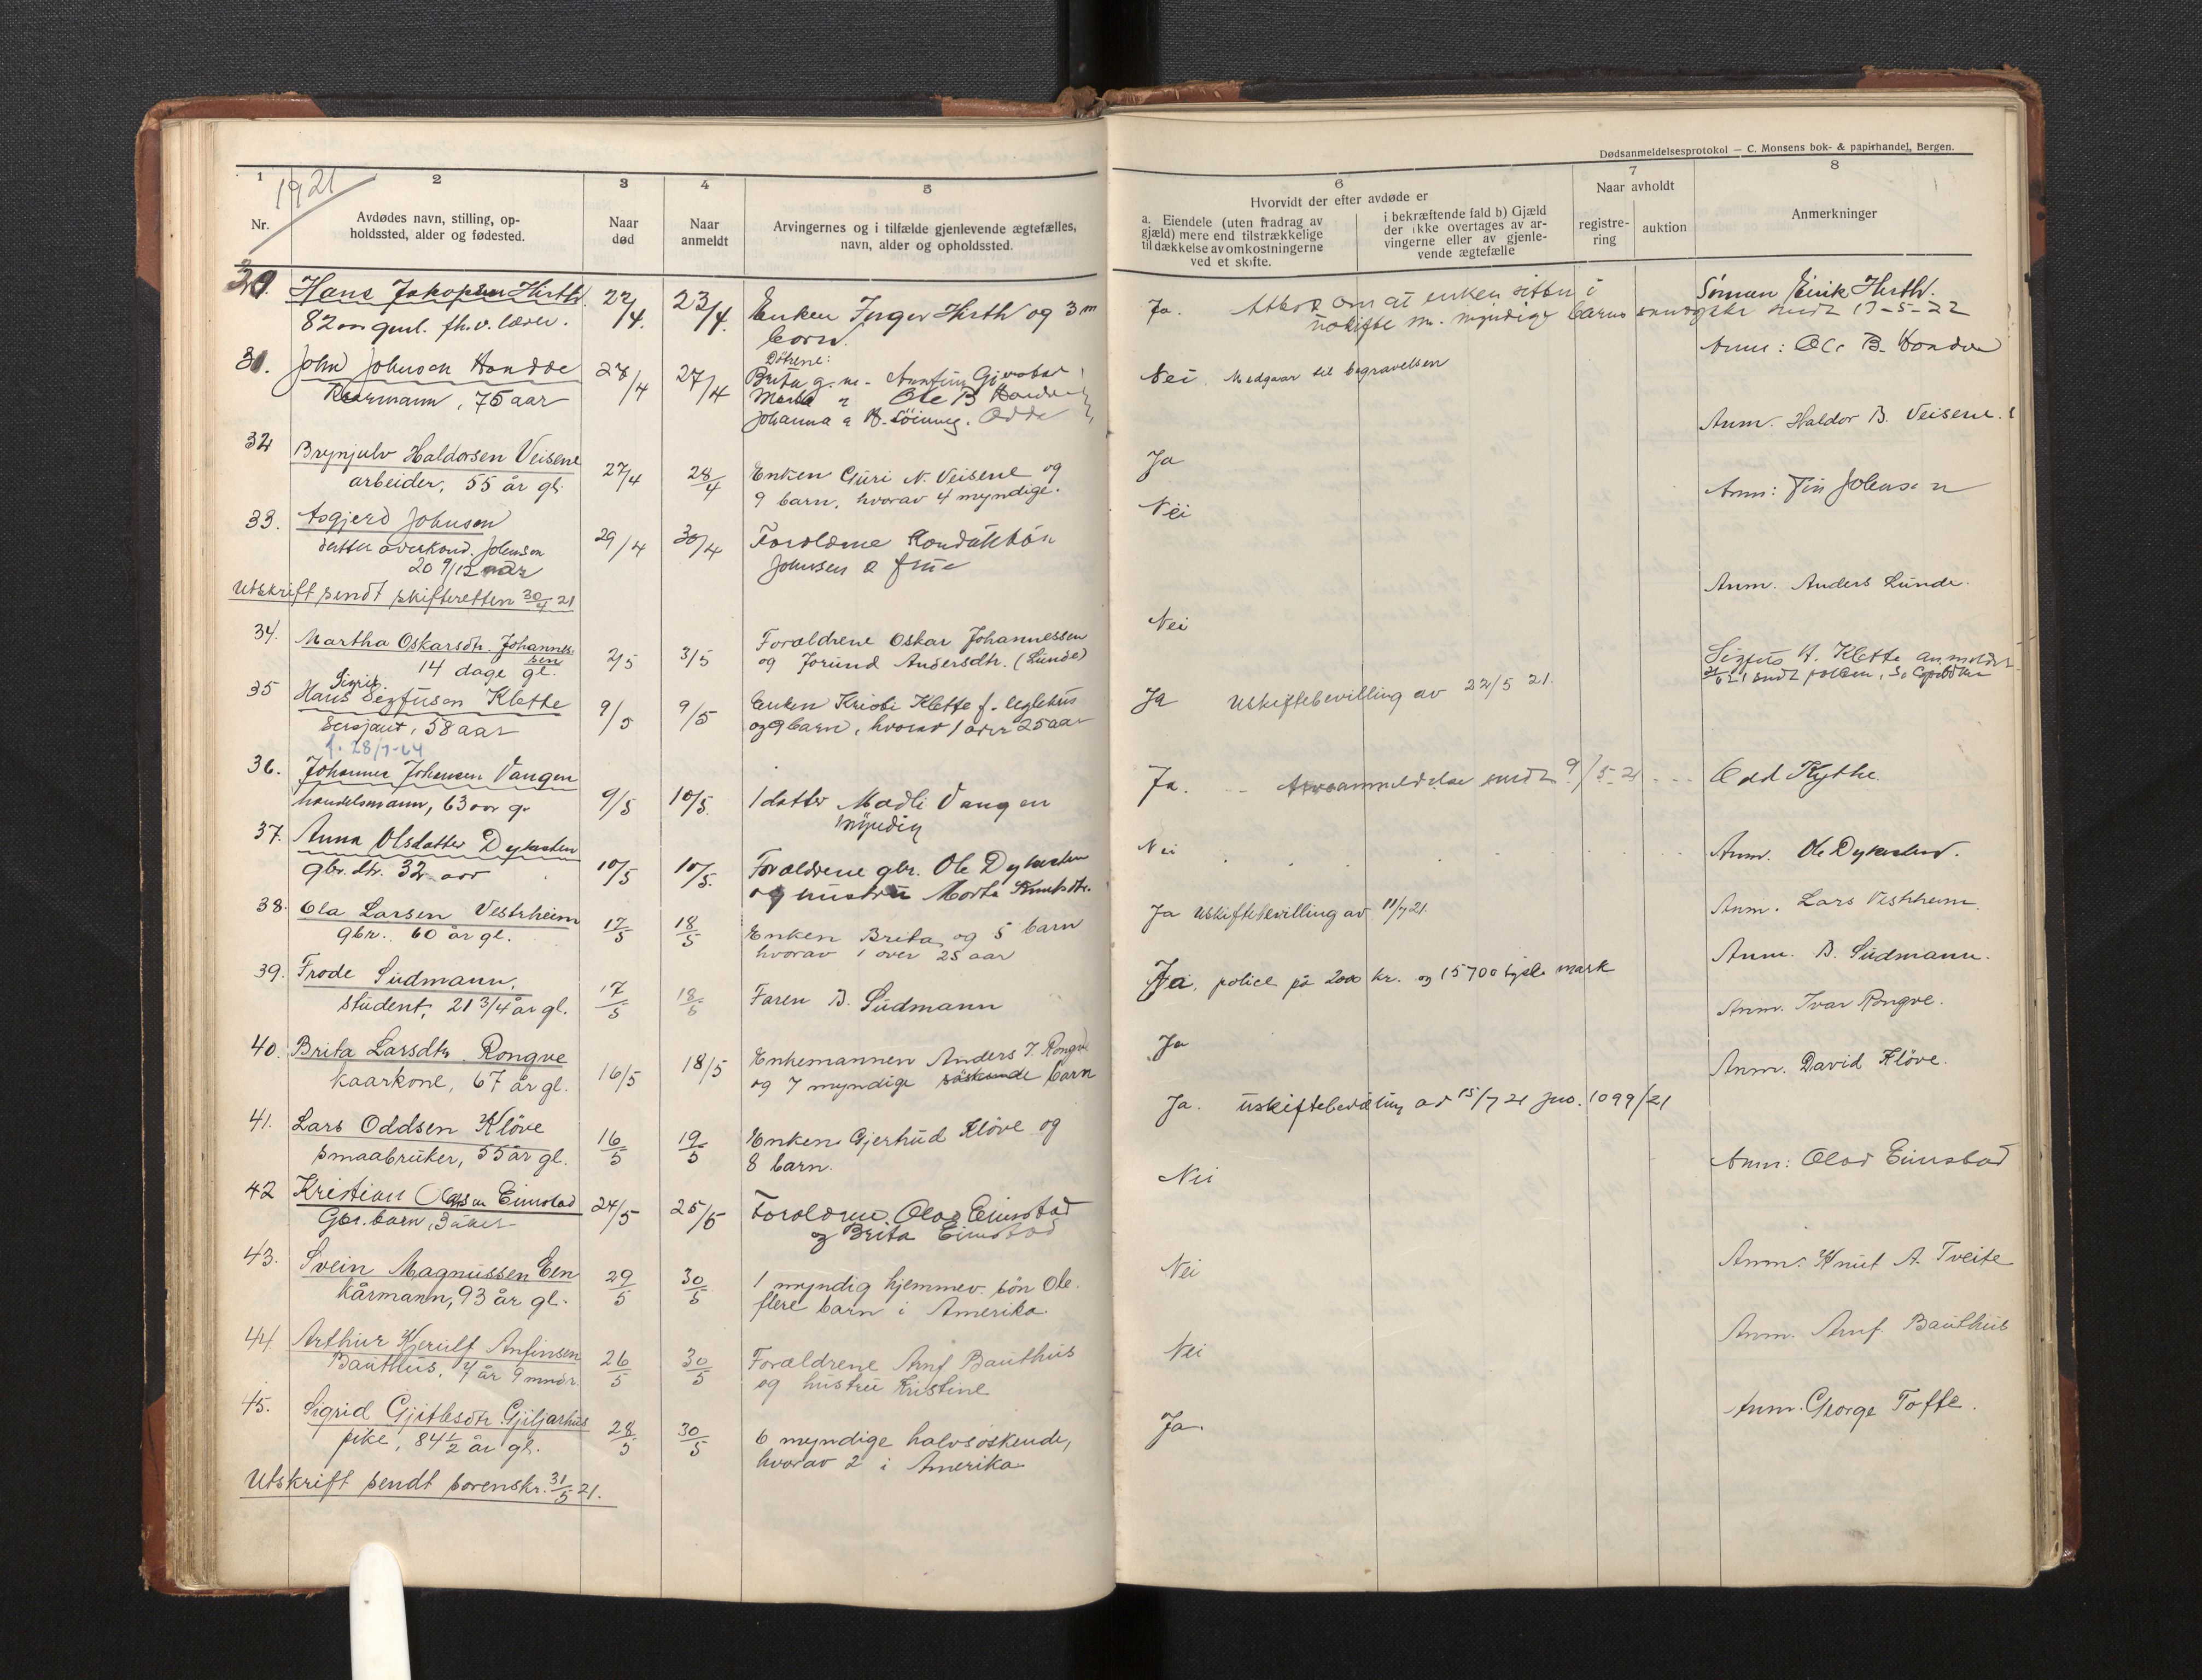 Dødsanmeldelsesprotokol — C. Monsens bok- & papirhandel, Bergen.
1921
1 2 3 4 5 6 7 8
Nr.
Avdødes navn, stilling, op-
holdssted, alder og fødested.
Naar
død
Naar
anmeldt
Arvingernes og i tilfælde gjenlevende ægtefælles,
navn, alder og opholdssted.
Hvorvidt der efter avdøde er
a. Eiendele (uten fradrag av
gjæld) mere end tilstrækkelige
til dækkelse av omkostningerne
ved et skifte.
i bekræftende fald b) Gjæld
der ikke overtages av ar-
vingerne eller av gjenle-
vende ægtefælle
Naar avholdt
registre-
ring
auktion
Anmerkninger
Hans Jakopsen Hirth. 22/4. 23/4. Enken Inger Hirth og 3 m Ja. om at enken sitter i Sönnen Eirik Hirth.
82 aar gml. fh.v. lærer. barn. uskifte m. myndige barns sendt 17-5-22
31. John Johnsen Hondve 27/4 27/4 Døtrene: Nei. Medgaar til begravelsen Anm: Ole B. Hondve
Kaarmann, 75 aar Brita g.m.
Ole B Hondve
Johanna Odda
32 Brynjulv Haldorsen Veisene 27/4 28/4 Enken Guri N. Veisene og Ja Anm. Haldor B. Veisene.
arbeider, 55 år gl. 9 barn, hvorav 4 myndige.
33. Asgjerd Johnson 29/4 30/4 Forældrene Nei Anm: Johnsen
datter av Johnson Johnsen & frue
20 9/12 aar
Utskrift sendt skifteretten 30/4 21
34. Martha Oskarsdtr. Johannes- 2/5 3/5 Forældrene Oskar Johannessen Nei Anm. Anders Lunde.
sen
14 dage gl. og Jorund Andersdtr. (Lunde)
35 Hans Sigfusson Klette 9/5 9/5 Enken Klette f. Ja Uskiftebevilling av 22/5 21. Sigfus H. Klette anmeldt
Sersjant, 58 aar og 9 barn, hvorav 1 over 25 aar
f. 28/7-64
36. Johannes Johansen Vangen 9/5 10/5. 1 datter Madli Vangen Ja. sendt 9/5-21 Odd Kythe.
handelsmann, 63 aar g. myndig
37. Anna Olsdatter Dykesten 10/5 10/5. Forældrene gbr. Ole Dykesten Nei Anm. Ole Dykesten.
gbr. dtr. 32 aar og hustru Marta Knutsdtr.
38. Ola Larsen Vestrheim 17/5 18/5 Enken Brita og 5 barn Ja Uskiftebevilling av 11/7 21. Anm. Lars Vestrheim.
gbr. 60 år gl. hvorav 1 over 25 aar
39. Frode Sudmann, 17/5 18/5 Faren B. Sudmann Ja, police på 2000 kr. og 15700 tyske mark Anm. B. Sudmann.
student, 21 3/4 år gl.
40. Brita Larsdtr. Rongve 16/5 18/5 Enkemannen Anders I. Rongve Ja Anm. Ivar Rongve.
kaarkone, 67 år gl. og 7 myndige söskende barn
41. Lars Oddsen Klöve 16/5 19/5 Enken Gjertrud Klöve og Ja. uskiftebevilling av 15/7 21 jno. 1099/21 Anm. David Klöve.
smaabruker, 55 år gl. 8 barn.
42 Kristian Olavsen Eimstad 24/5 25/5 Forældrene Olav Eimstad Nei Anm: Olav Eimstad
Gbr. barn, og Brita Eimstad
43. Svein Magnussen Een 29/5 30/5 1 myndig hjemmev. sön Ole. Nei Anm. Knut A. Tveite
kårmann, 93 år gl. flere barn i Amerika.
44. Arthur Kjerulf Anfinsen 26/5 30/5 Forældrene Anf. Bauthus Nei Anm. Anf. Bauthus
Bauthus, 4 år 9 mndr. og hustru Kristine
45. Sigrid Gjitlesdtr. Gjiljarhus 28/5 30/5 6 myndige halvsöskende, Ja. Anm. George Tofte.
pike, 84 1/2 år gl. hvorav 2 i Amerika.
Utskrift sendt sorenskr. 31/5 21.